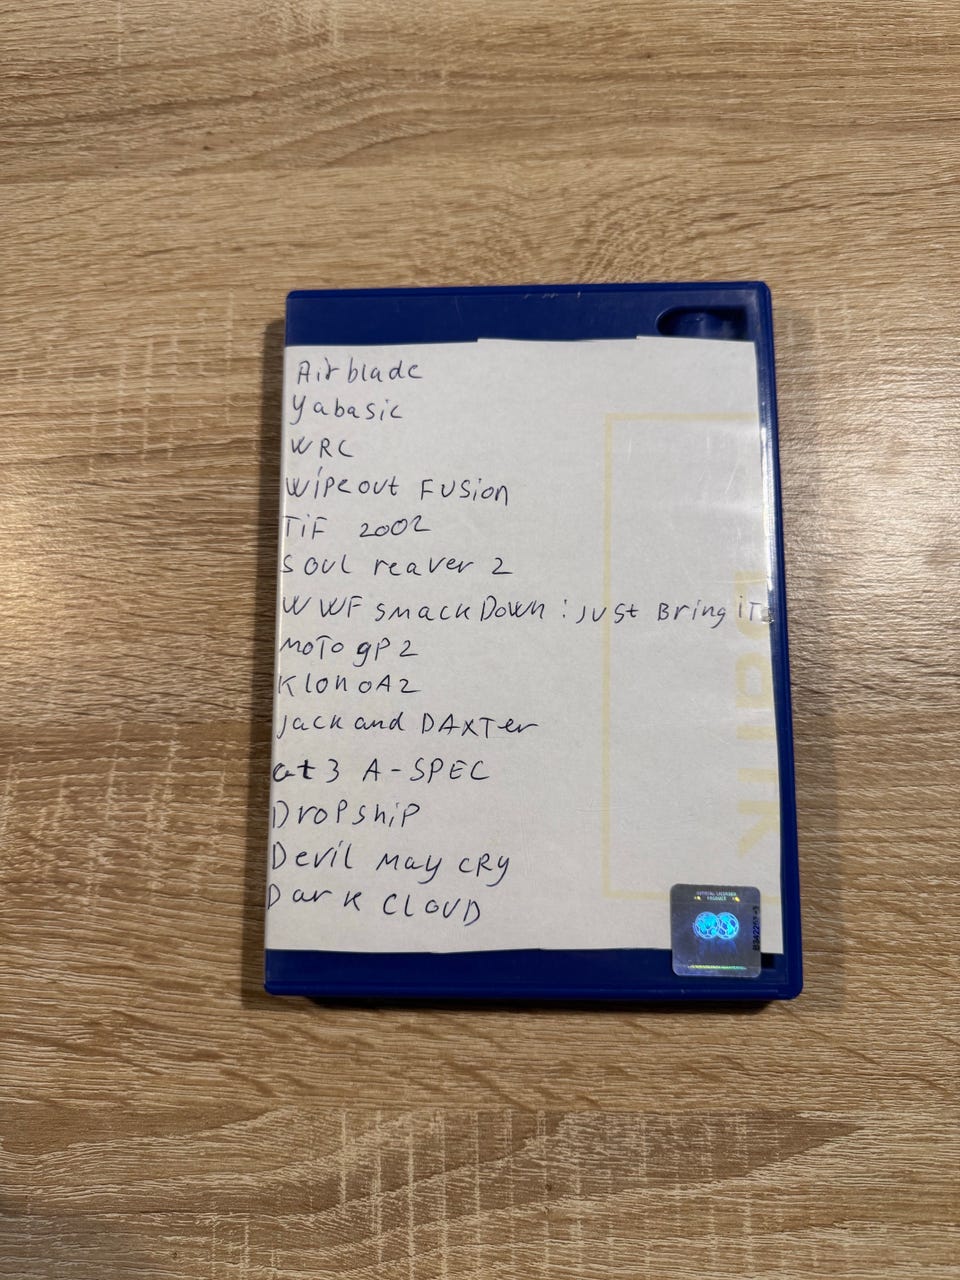 Airblade
Yabasic
WRC
Wipeout Fusion
TiF 2002
Soul reaver 2
WWF SmackDown: just Bring iT
MoTo gP 2
KlonoA2
Jack and DAXTer
at 3 A-SPEC
DroPshiP
Devil May CRY
Dark CLOUD
OFFICIAL LICENSED
PRODUCT